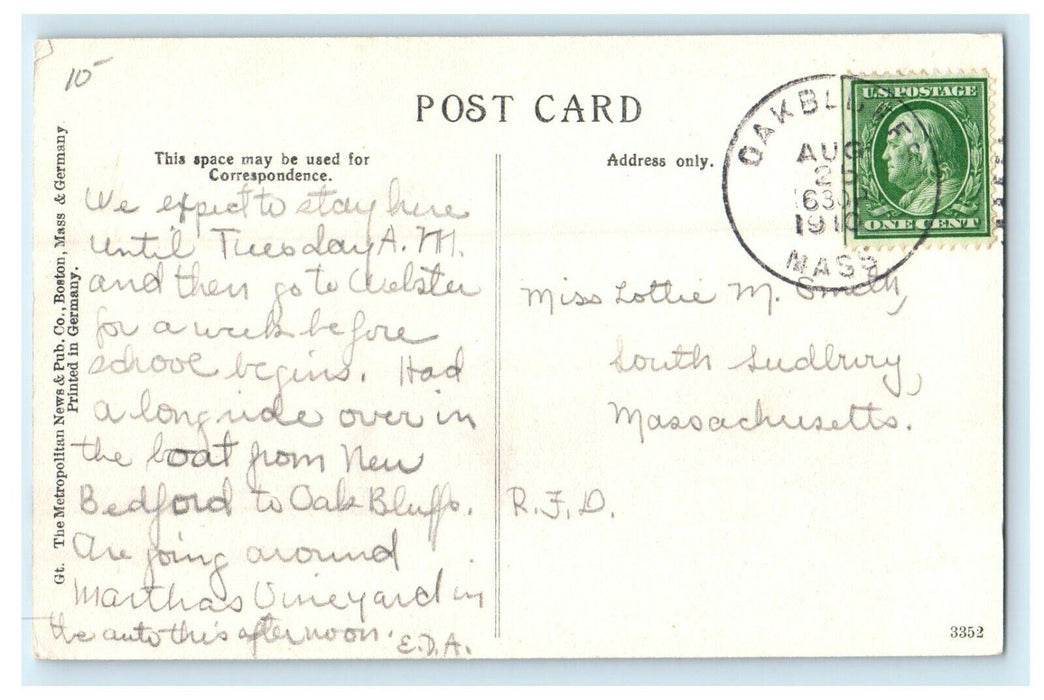 10
POST CARD
This space may be used for
Correspondence.
Address only.
We expect to stay here
until Tuesday A.M.
and then go to Webster
for a week before
school begins. Had
a long ride over in
the boat from New
Bedford to Oak Bluffs.
Are going around
Marthas Vineyard in
the auto this afternoon.
E.D.A.
OAK BLUFFS
AUG
25
630P
1910
MASS.
U.S. POSTAGE
ONE CENT
Miss Lottie M. Smith,
South Sudbury,
Massachusetts.
R.F.D.
Gt. The Metropolitan News & Pub. Co., Boston, Mass & Germany
Printed in Germany.
3352